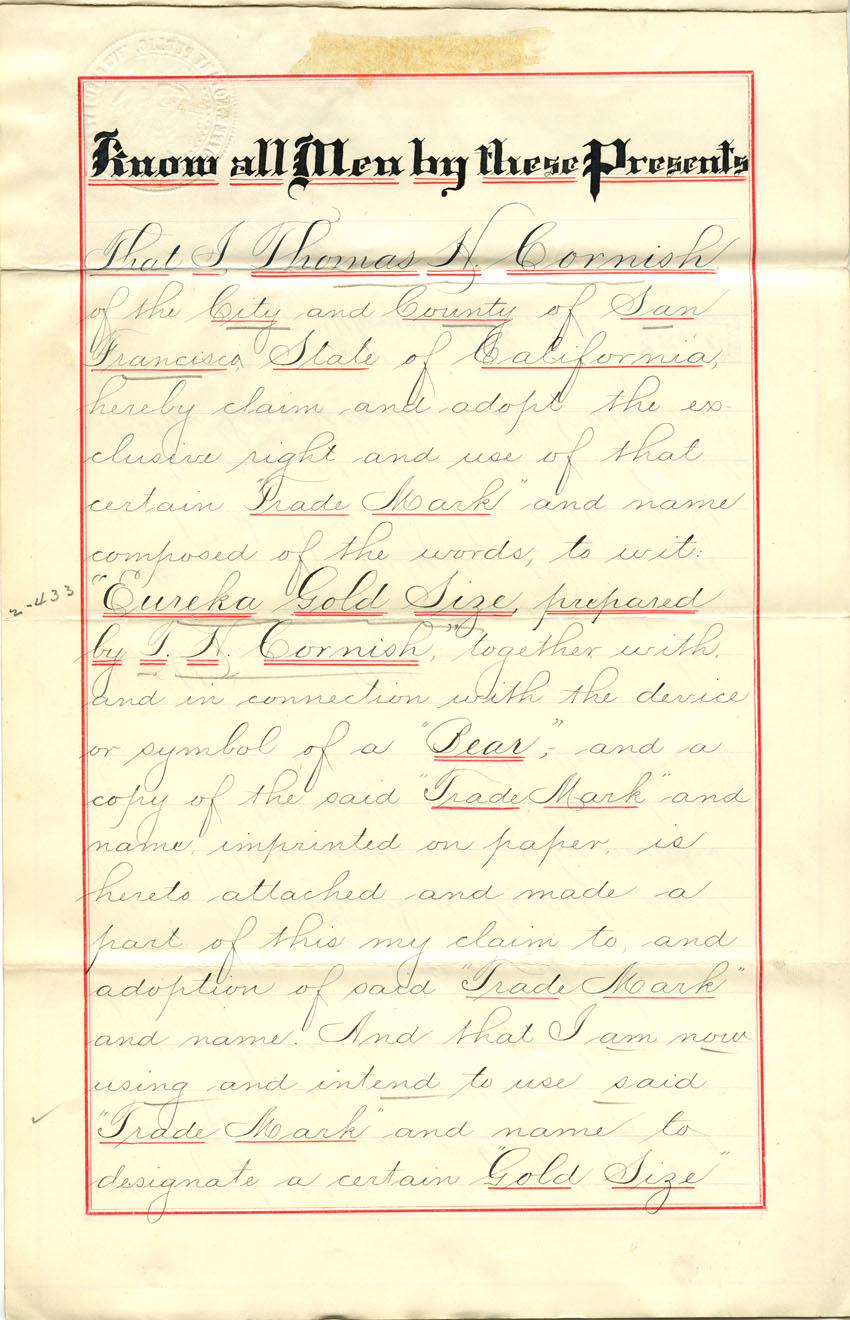 Know all Men by these Presents
That I, Thomas N. Cornish
of the City and County of San
Francisco, State of California,
hereby claim and adopt the ex-
clusive right and use of that
certain "Trade Mark" and name
composed of the words, to wit:
2-433
"Eureka Gold Size, prepared
by T. N. Cornish," together with,
and in connection with the device
or symbol of a "Bear",- and a
copy of the said "Trade Mark" and
name, imprinted on paper, is
hereto attached and made a
part of this my claim to, and
adoption of said "Trade Mark"
and name. And that I am now
using and intend to use said
"Trade Mark" and name to
designate a certain "Gold Size"